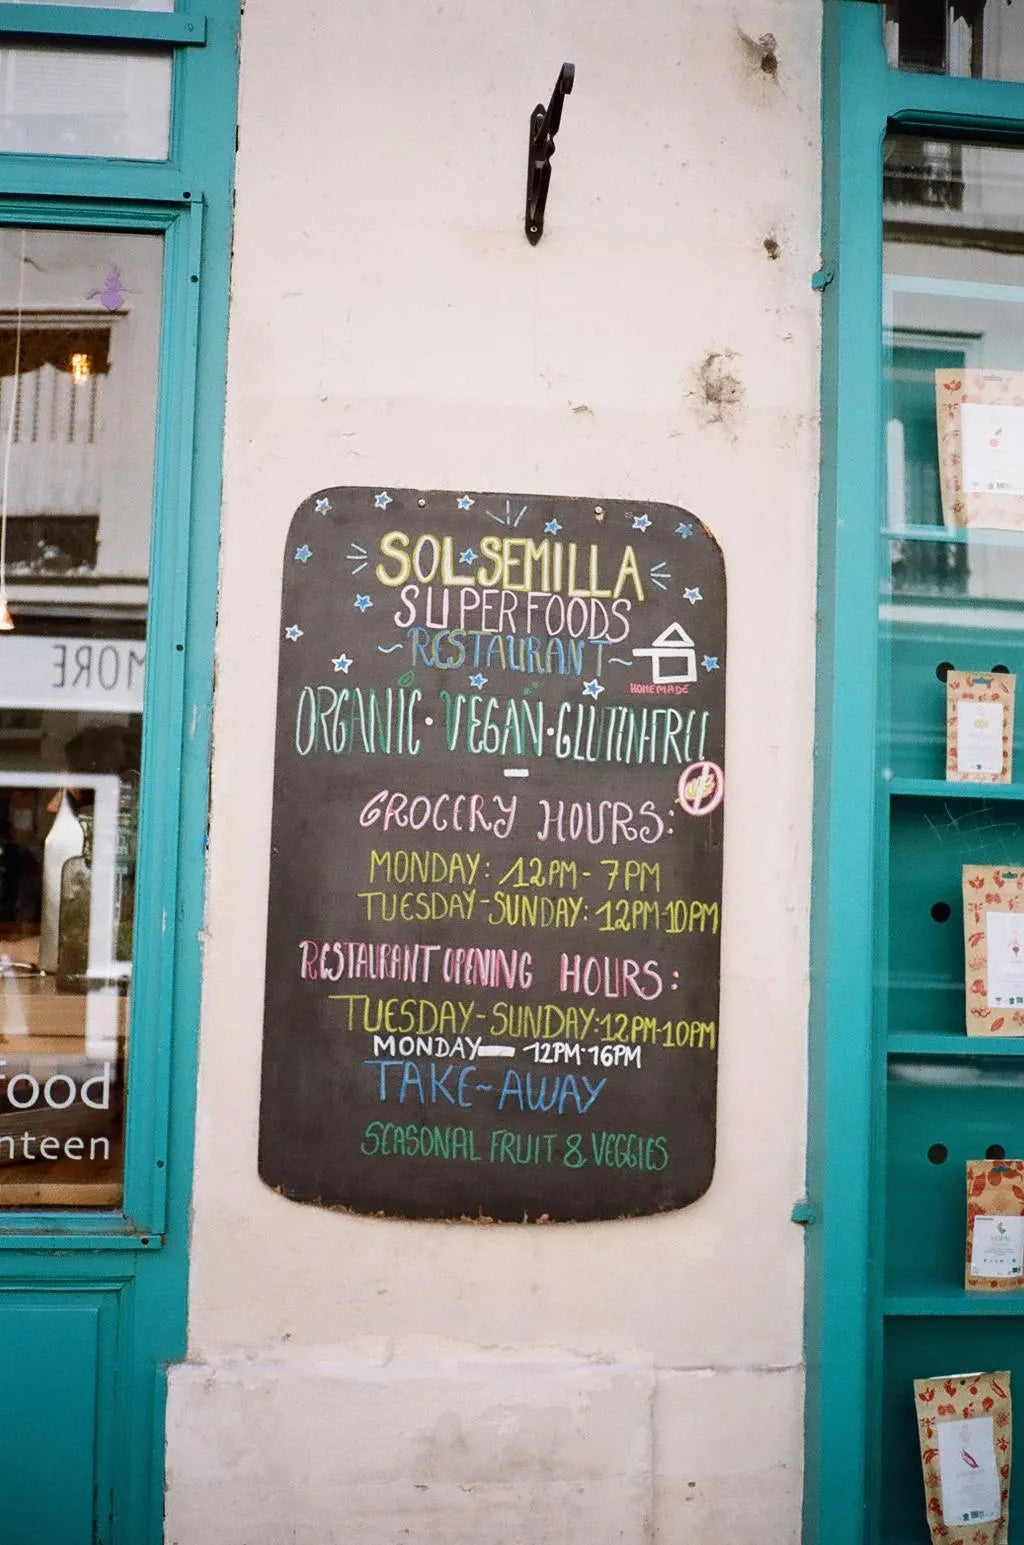 SOL SEMILLA
SUPERFOODS
~RESTAURANT~
HOMEMADE
ORGANIC · VEGAN · GLUTENFREE
-
GROCERY HOURS:
MONDAY: 12PM - 7PM
TUESDAY-SUNDAY: 12PM-10PM
RESTAURANT OPENING HOURS:
TUESDAY-SUNDAY: 12PM-10PM
MONDAY — 12PM-16PM
TAKE~AWAY
SEASONAL FRUIT & VEGGIES
MORE
food
nteen
NOPAL